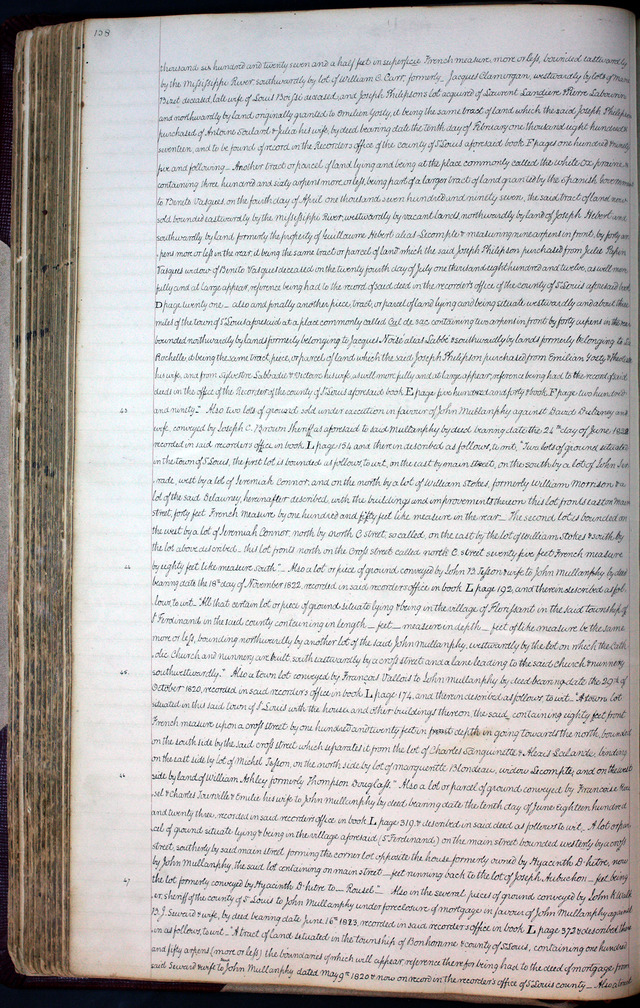 158
thousand six hundred and twenty seven and a half feet in superficie French measure, more or less, bounded eastwardly
by the Mississippi River southwardly by lot of William C. Carr, formerly Jacques Clamorgan, westwardly by lots of
Bizet deceased, late wife of Louis Boissi deceased, and Joseph Philipson's lot acquired of Laurent Landure & Pierre Labourin
and northwardly by land originally granted to Emilien Yosty, it being the same tract of land which the said Joseph Philipson
purchased of Antoine Soulard & Julia his wife, by deed bearing date the tenth day of February one thousand eight hundred &
seventeen, and to be found of record in the Recorders office of the county of St Louis aforesaid book F pages one hundred & ninety
five and following – Another tract or parcel of land lying and being at the place commonly called the White Ox prairie,
containing three hundred and sixty arpens more or less, being part of a larger tract of land granted by the Spanish Government
to Benito Vasques on the fourth day of April one thousand seven hundred and ninety seven, the said tract of land
sold bounded eastwardly by the Mississippi River, westwardly by vacant lands, northwardly by land of Joseph Hebert and
southwardly by land formerly the property of Guillaume Hebert alias Lecompte & measuring nine arpens in front, by forty ar-
pens more or less in the rear it being the same tract or parcel of land which the said Joseph Philipson purchased from Julie Papin
Vasques widow of Benito Vasques deceased on the twenty fourth day of July one thousand eight hundred and twelve, as will more
fully and at large appear, reference being had to the record of said deed in the recorder's office of the county of St Louis aforesaid book
D page twenty one – also and finally another piece, tract, or parcel of land lying and being situate westwardly and about three
miles of the town of St Louis aforesaid at a place commonly called Cul de sac, containing two arpens in front by forty arpens in the rear
bounded northwardly by lands formerly belonging to Jacques Noise alias Labbé & southwardly by lands formerly belonging to La
Rochelle it being the same tract, piece, or parcel of land which the said Joseph Philipson purchased from Emilian Yosty &
his wife, and from Silvestre Labbadie & Victoire his wife, as will more fully and at large appear, reference being had to the record of said
deeds in the office of the Recorder of the county of St Louis aforesaid book E page five hundred and forty & book F page two hundred
43 and ninety." Also two lots of ground sold under execution in favour of John Mullanphy against David Delaunay and
wife, conveyed by Joseph C. Brown Sheriff as aforesaid to said Mullanphy by deed bearing date the 24th day of June 1822
recorded in said recorder's office in book L page 134 and therein described as follows, to wit, "Two lots of ground situated
in the town of St Louis, the first lot is bounded as follows, to wit, on the east by main street, on the south by a lot of John
rade, west by a lot of Jeremiah Connor, and on the north by a lot of William Stokes, formerly William Morrison & a
lot of the said Delauney, hereinafter described, with the buildings and improvements thereon this lot fronts east on Main
street, forty feet French measure by one hundred and fifty feet like measure in the rear – The second lot is bounded on
the west by a lot of Jeremiah Connor, north by north C street, so called, on the east by the lot of William Stokes & south by
the lot above described – this lot fronts north on the Cross street called north C. street seventy five feet French measure
44 by eighty feet like measure south". – Also a lot or piece of ground conveyed by John B. Tesson & wife to John Mullanphy by deed
bearing date the 18th day of November 1822, recorded in said recorders office in book L page 192, and therein described as fol-
lows, to wit – "All that certain lot or piece of ground situate lying & being in the village of Florissant in the said township of
St Ferdinand in the said county containing in length – feet – measure in depth – feet of like measure be the same
more or less, bounding northwardly by another lot of the said John Mullanphy, westwardly by the lot on which the Cath-
olic Church and nunnery are built southeastwardly by a cross street and a lane leading to the said church & nunnery
45. southwestwardly." Also a town lot conveyed by François Vallois to John Mullanphy by deed bearing date the 29th of
October 1820, recorded in said recorder's office in book L page 174, and therein described as follows, to wit – "A town lot
situated in this said town of St Louis with the house and other buildings thereon, the said containing eighty feet front
French measure upon a cross street by one hundred and twenty feet in depth in going towards the north, bounded
on the south side by the said cross street which separates it from the lot of Charles Sanguinette & Alexis Lalande, binding
on the east side by lot of Michel Tesson, on the north side by lot of Marguerite Blondeau, widow Lecompte, and on the west
46 side by land of William Ashley formerly Thompson Douglass." Also a lot or parcel of ground conveyed by Francoise Rou-
sel & Charles Tourville & Emilie his wife to John Mullanphy by deed bearing date the tenth day of June Eighteen hundred
and twenty three, recorded in said recorder's office in book L page 319, & described in said deed as follows to wit – A lot or par-
cel of ground situate lying & being in the village aforesaid (St Ferdinand) on the main street bounded westerly by a cross
street, southerly by said main street forming the corner lot opposite the house formerly owned by Hyacinth D'hetre, now
by John Mullanphy, the said lot containing on main street – feet running back to the lot of Joseph Aubuchon – feet, being
47 the lot formerly conveyed by Hyacinth D'hutre to – Rousel" – Also in the several pieces of ground conveyed by John K. Walk-
er, sheriff of the county of St Louis to John Mullanphy under foreclosure of mortgage in favour of John Mullanphy against
B. J. Seward & wife, by deed bearing date June 16th 1823, recorded in said recorder's office in book L page 373 & described there-
in as follows, to wit – "A tract of land situated in the township of Bonhomme & county of St Louis, containing one hundred
and fifty arpens (more or less) the boundaries of which will appear reference therefor being had to the deed of mortgage from
said Seward & wife to John Mullanphy dated May 9th 1820 & now on record in the recorder's office of St Louis county – Also a